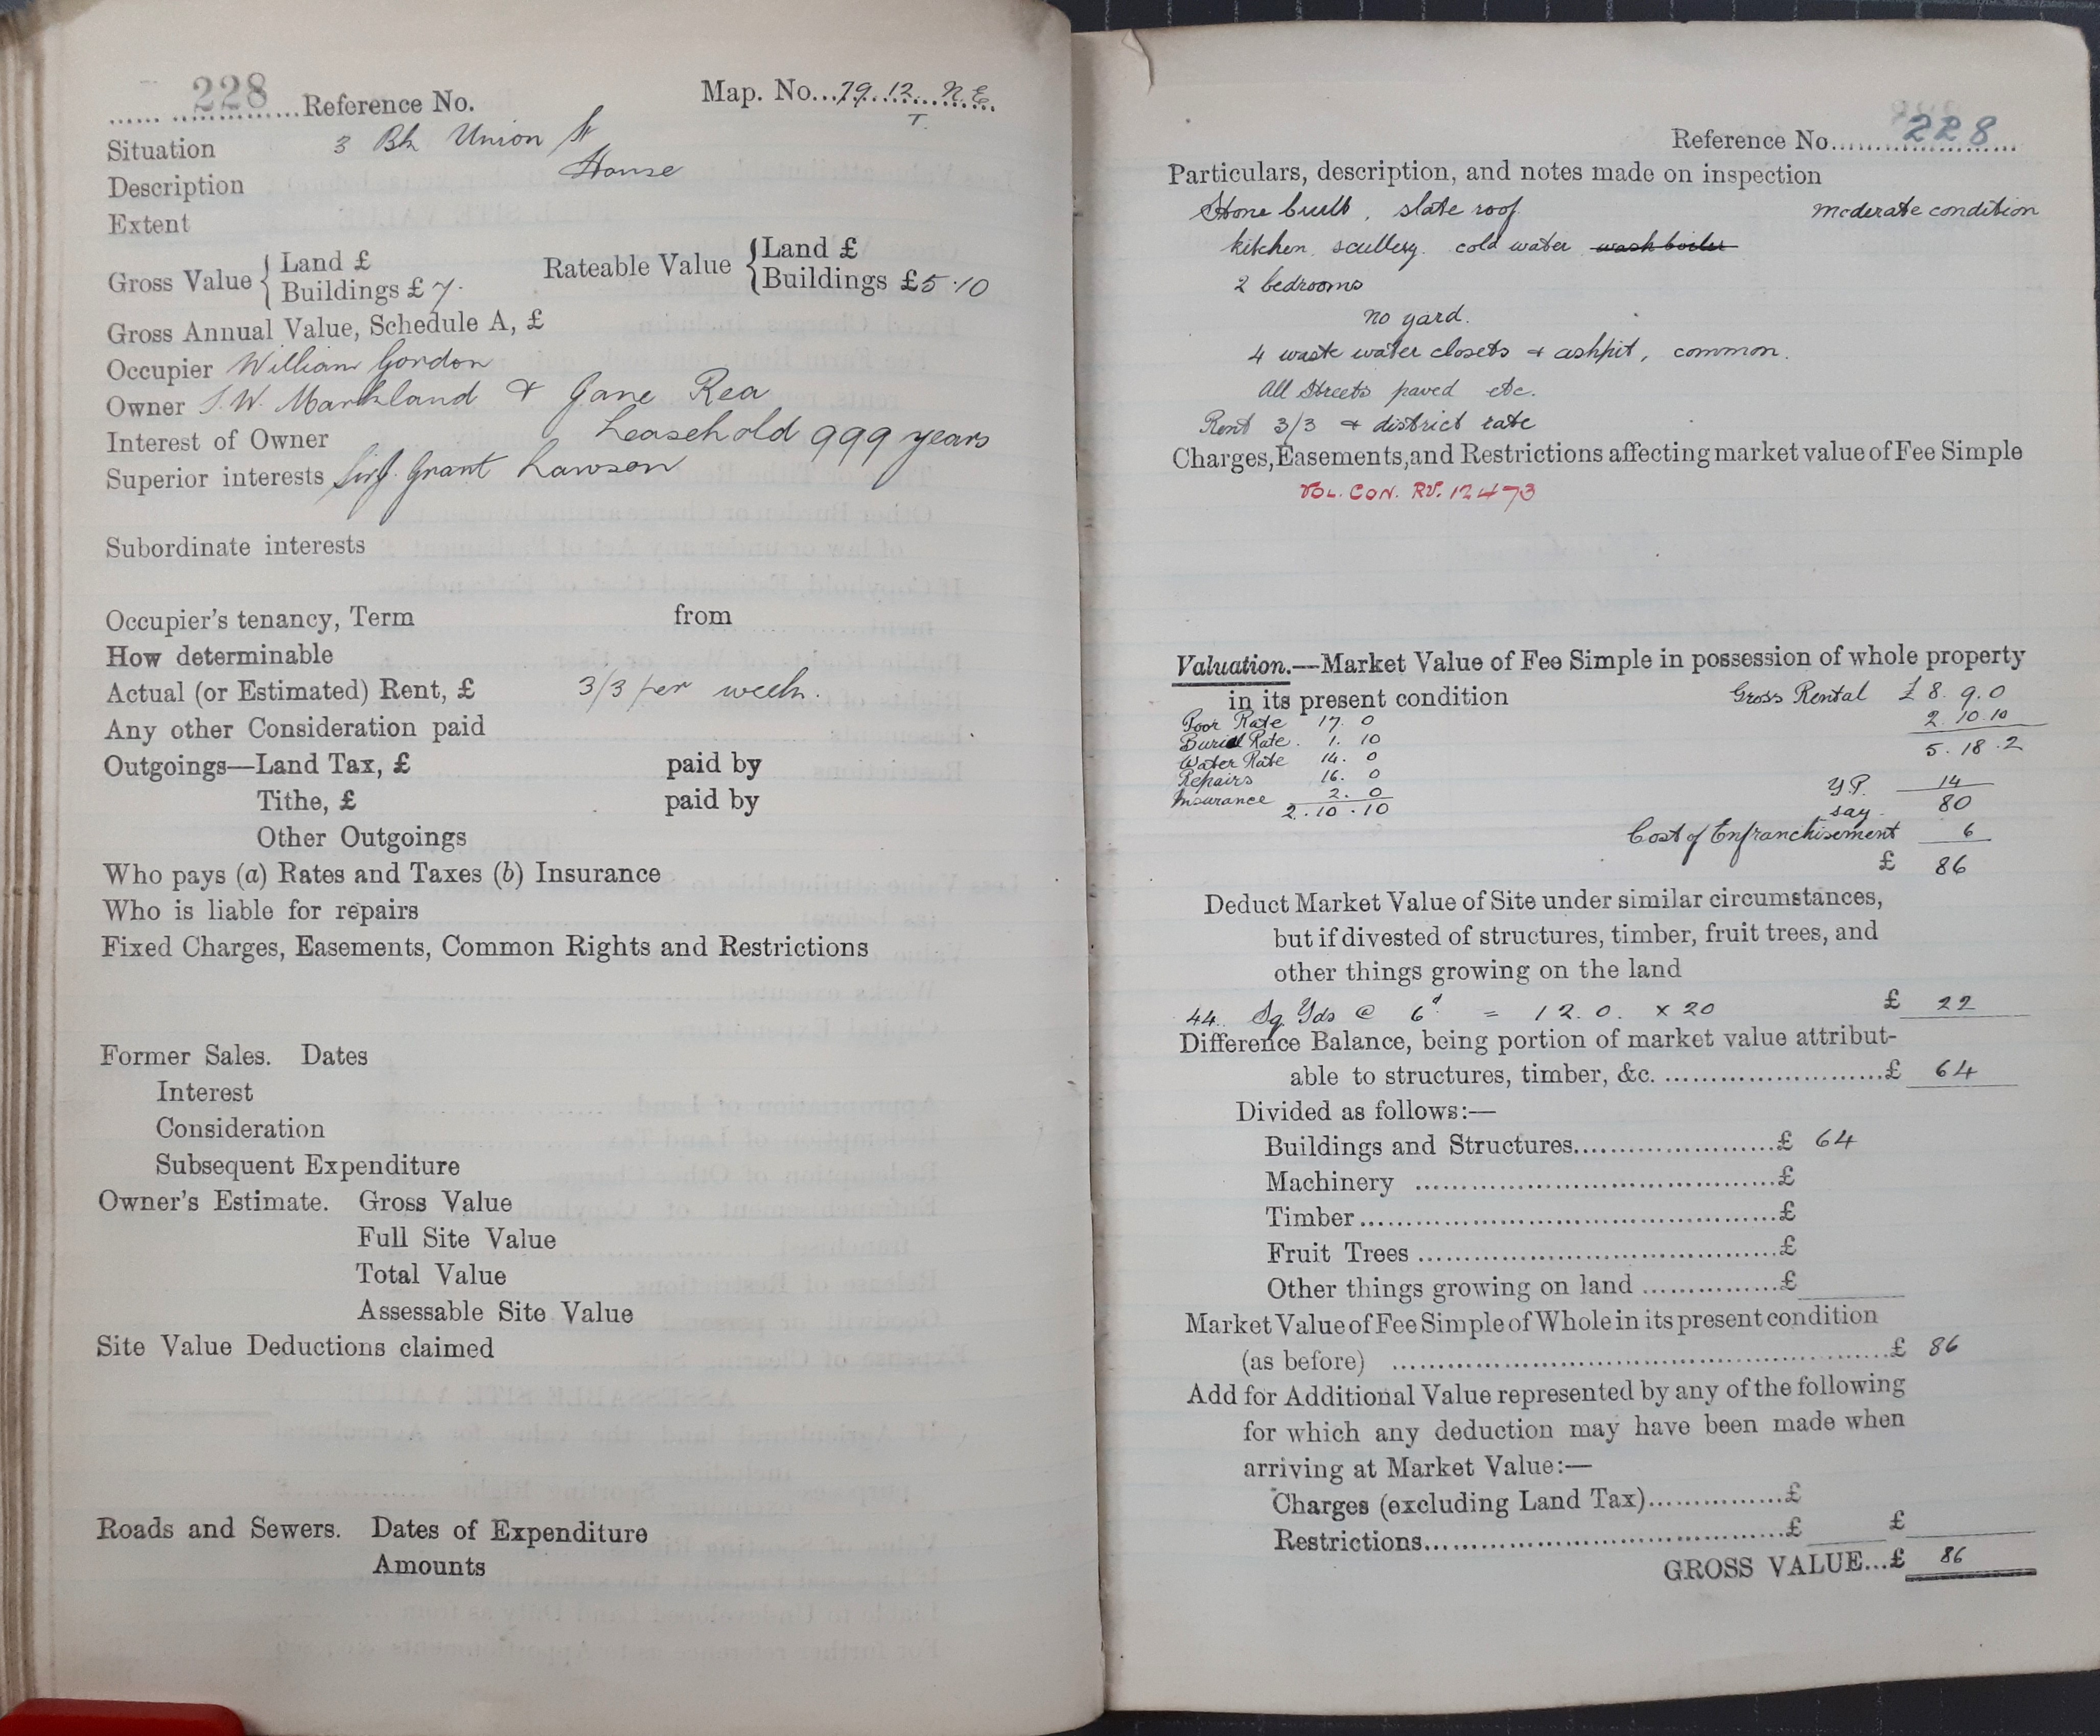 228 Reference No. Map. No. 79. 12. N.E.
T.
Situation 3 Bk Union St
Description House
Extent
Gross Value { Land £ Rateable Value { Land £
Buildings £ 7. Buildings £5.10
Gross Annual Value, Schedule A, £
Occupier William Gordon
Owner J. W. Markland & Jane Rea
Interest of Owner Leasehold 999 years
Superior interests Sir J. Grant Lawson
Subordinate interests
Occupier's tenancy, Term from
How determinable
Actual (or Estimated) Rent, £ 3/3 per week.
Any other Consideration paid
Outgoings—Land Tax, £ paid by
Tithe, £ paid by
Other Outgoings
Who pays (a) Rates and Taxes (b) Insurance
Who is liable for repairs
Fixed Charges, Easements, Common Rights and Restrictions
Former Sales. Dates
Interest
Consideration
Subsequent Expenditure
Owner's Estimate. Gross Value
Full Site Value
Total Value
Assessable Site Value
Site Value Deductions claimed
Roads and Sewers. Dates of Expenditure
Amounts
Reference No. 228
Particulars, description, and notes made on inspection
Stone built, slate roof. Moderate condition
kitchen, scullery. cold water wash boiler
2 bedrooms
no yard.
4 waste water closets & ashpit, common.
All Streets paved etc.
Rent 3/3 & district rate
Charges, Easements, and Restrictions affecting market value of Fee Simple
VOL. CON. RV. 12473
Valuation.—Market Value of Fee Simple in possession of whole property
in its present condition Gross Rental £8. 9. 0
Poor Rate 17. 0 2. 10. 10
Burial Rate. 1. 10 5. 18. 2
Water Rate 14. 0
Repairs 16. 0 Y.P. 14
Insurance 2. 0 say. 80
2. 10. 10
Cost of Enfranchisement 6
£ 86
Deduct Market Value of Site under similar circumstances,
but if divested of structures, timber, fruit trees, and
other things growing on the land
44. Sq Yds @ 6d = 12. 0. x 20 £ 22
Difference Balance, being portion of market value attribut-
able to structures, timber, &c. £ 64
Divided as follows:—
Buildings and Structures £ 64
Machinery £
Timber £
Fruit Trees £
Other things growing on land £
Market Value of Fee Simple of Whole in its present condition
(as before) £ 86
Add for Additional Value represented by any of the following
for which any deduction may have been made when
arriving at Market Value:—
Charges (excluding Land Tax) £
Restrictions £ £
GROSS VALUE...£ 86